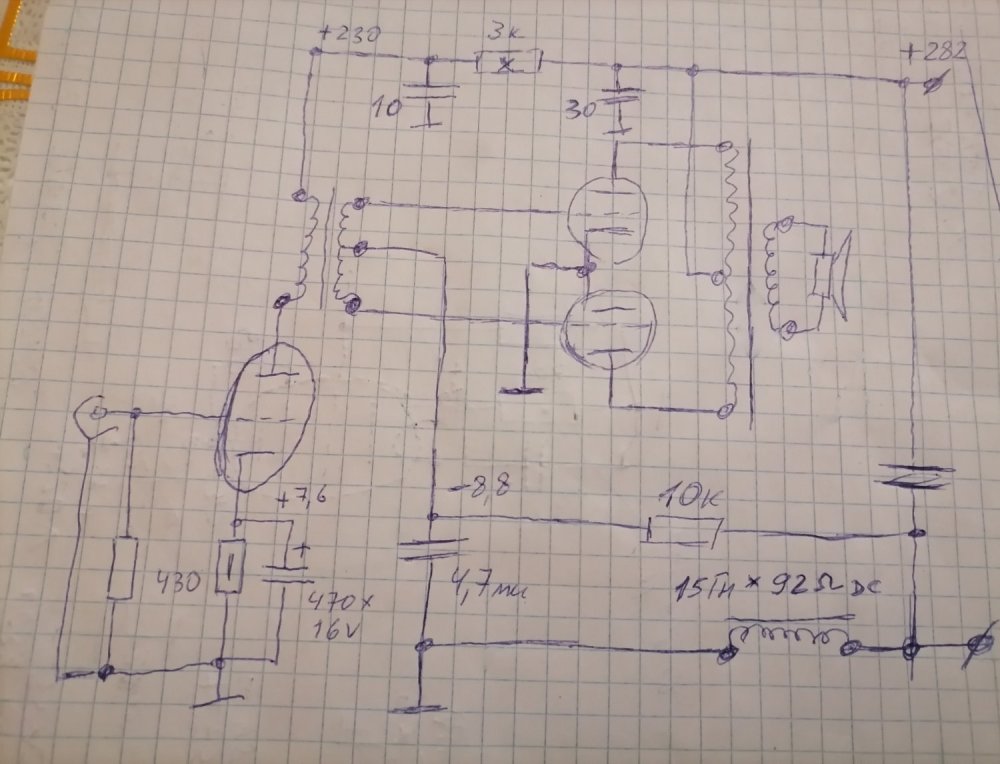 +230
3к
+282
10
30
+7,6
-8,8
10к
430
+
470x
16v
4,7мк
15Гн × 92Ω DC